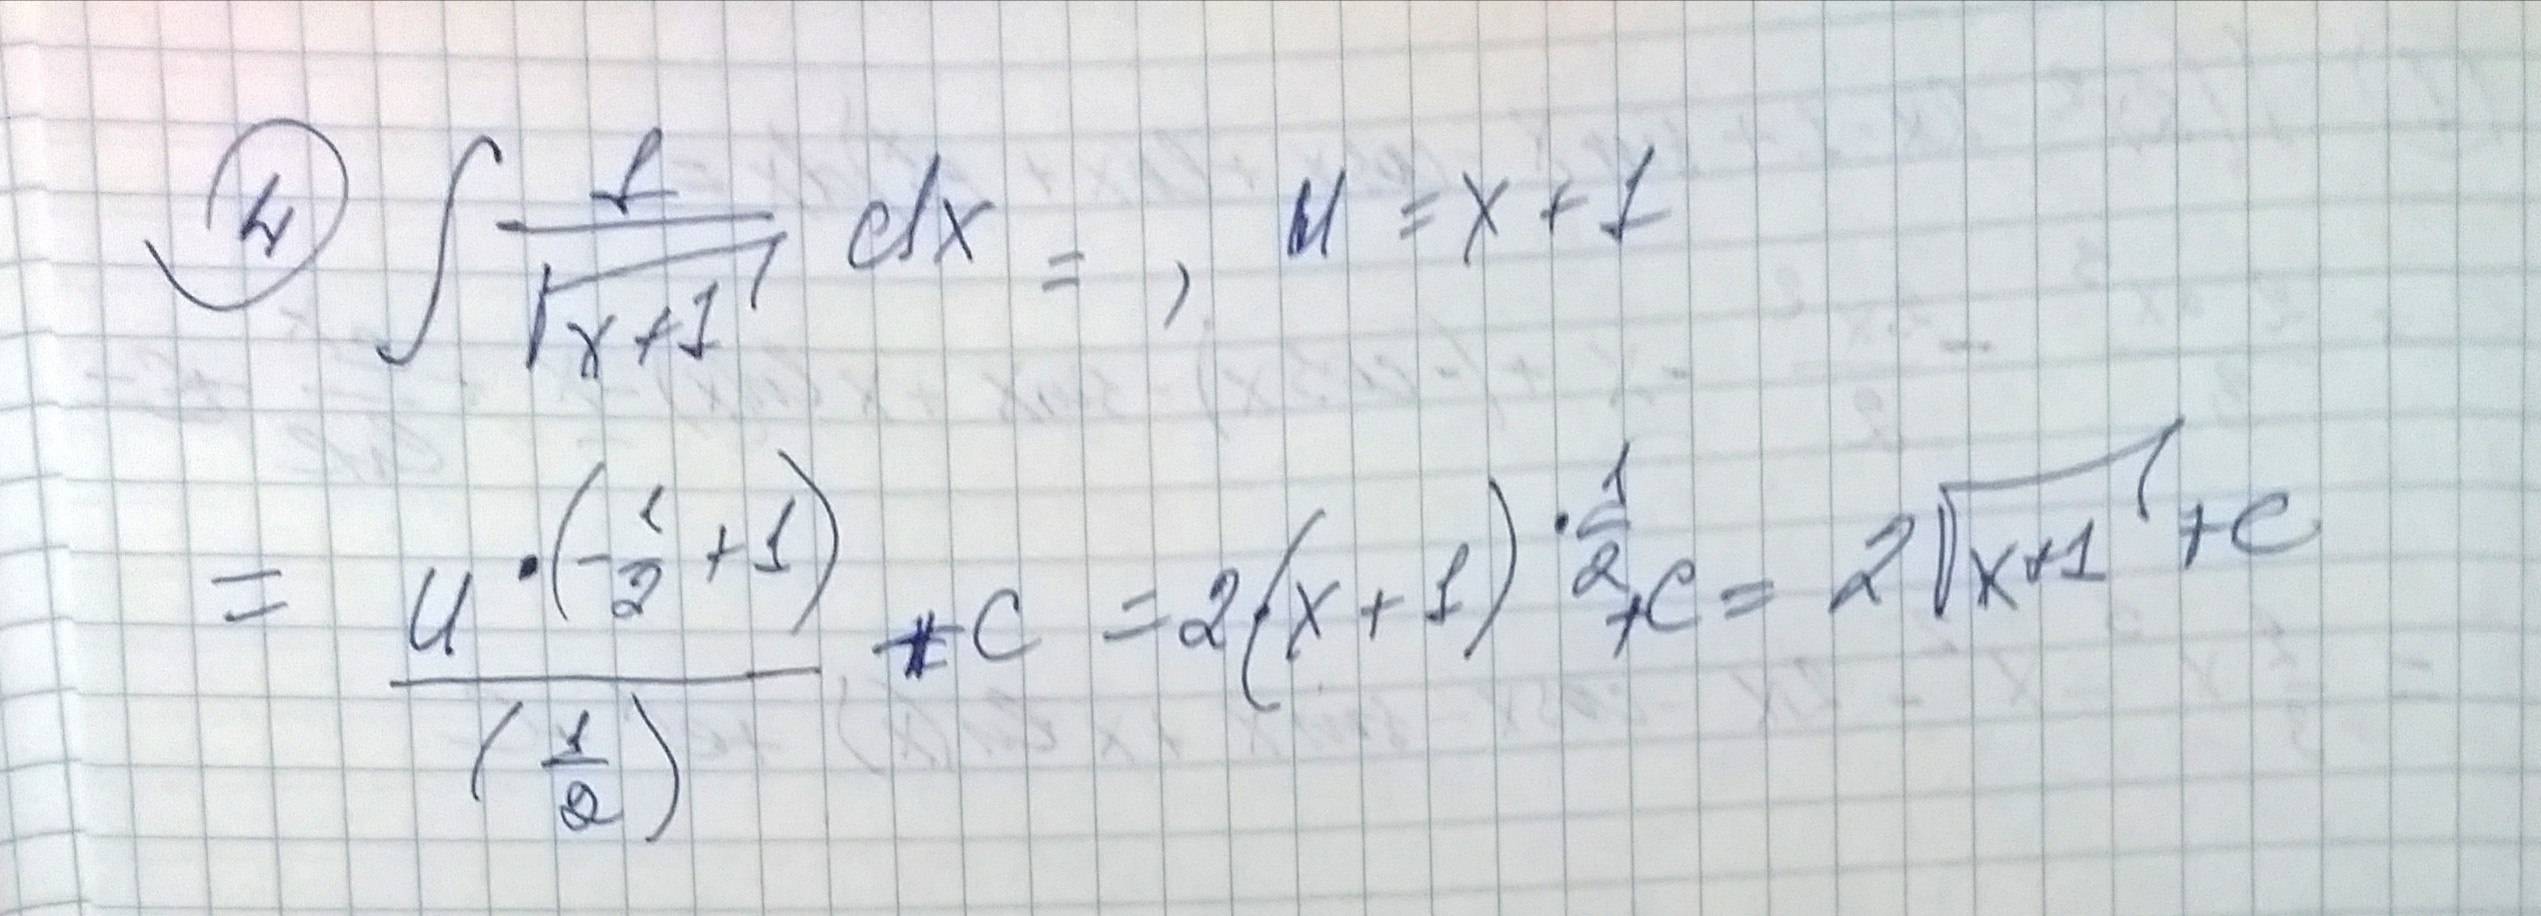 ④ ∫ 1/√(x+1) dx = , u = x + 1
= u^{·(-1/2 + 1)}/(1/2) + C = 2(x + 1)^{·1/2} + C = 2√(x+1) + C